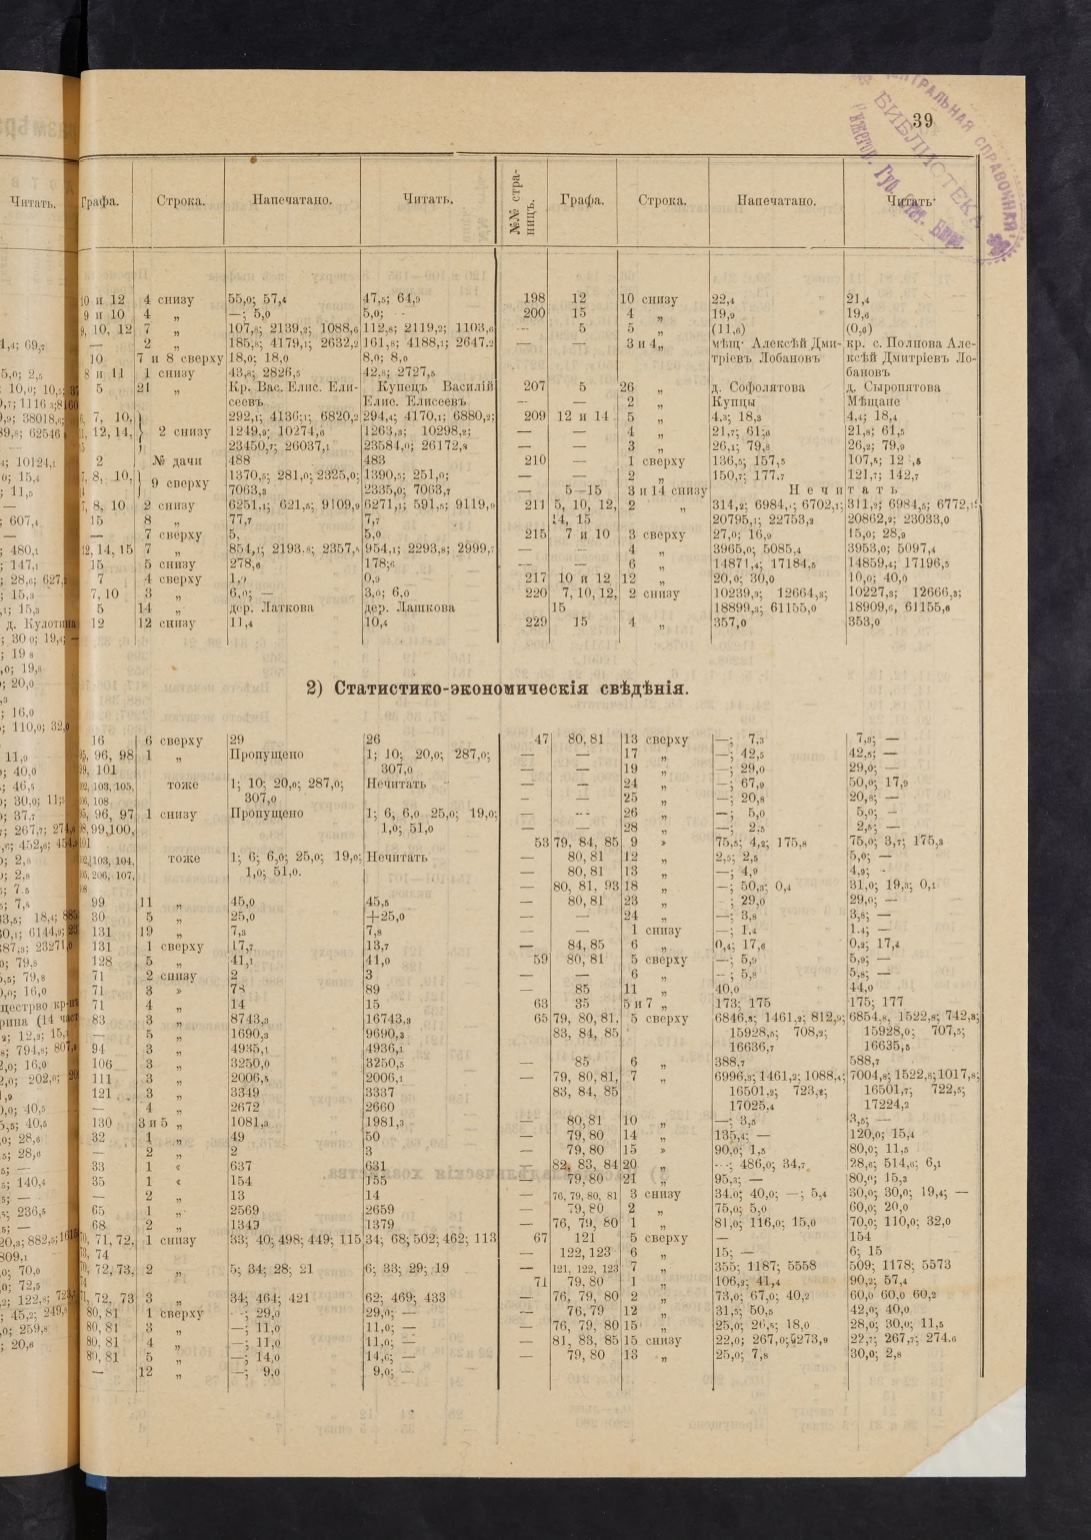 39
Графа. Строка. Напечатано. Читать.
№№ стра-
ницъ. Графа. Строка. Напечатано. Читать.
10 и 12 4 снизу 55,0; 57,4 47,5; 64,9
9 и 10 4 „ —; 5,0 5,0;
9, 10, 12 7 „ 107,8; 2139,2; 1088,6 112,8; 2119,2; 1103,6
— 2 „ 185,8; 4179,1; 2632,2 161,8; 4188,1; 2647.2
10 7 и 8 сверху 18,0; 18,0 8,0; 8,0
8 и 11 1 снизу 43,8; 2826,5 42,8; 2727,5
5 21 „ Кр. Вас. Елис. Ели- Купецъ Василій
сеевъ Елис. Елисеевъ
7, 10, 292,1; 4136,1; 6820,2 294,4; 4170,1; 6880,2;
12, 14, 2 снизу 1249,9; 10274,6 1263,3; 10298,2;
23450,7; 26037,1 23584,0; 26172,8
2 № дачи 488 483
7, 8, 10, 9 сверху 1370,5; 281,0; 2325,0; 1390,5; 251,0;
7063,3 2335,0; 7063,7
7, 8, 10 2 снизу 6251,1; 621,5; 9109,9 6271,1; 591,5; 9119,9
15 8 „ 77,7 7,7
— 7 сверху 5, 5,0
12, 14, 15 7 „ 854,1; 2193,8; 2357,5 954,1; 2293,8; 2999,7
15 5 снизу 278,6 178,6
7 4 сверху 1,9 0,9
7, 10 3 „ 6,0; — 3,0; 6,0
5 14 „ дер. Латкова дер. Лашкова
12 12 снизу 11,4 10,4
198 12 10 снизу 22,4 21,4
200 15 4 „ 19,9 19,6
— 5 5 „ (11,6) (0,6)
— — 3 и 4 „ мѣщ. Алексѣй Дми- кр. с. Полпова Але-
тріевъ Лобановъ ксѣй Дмитріевъ Ло-
бановъ
207 5 26 „ д. Софолятова д. Сыропятова
— — 2 „ Купцы Мѣщане
209 12 и 14 5 „ 4,3; 18,3 4,4; 18,4
— — 4 „ 21,7; 61,6 21,8; 61,5
— — 3 „ 26,1; 79,8 26,2; 79,9
210 — 1 сверху 136,5; 157,5 107,5;
— — 2 „ 150,7; 177,7 121,7; 142,7
— 5—15 3 и 14 снизу Не читать
211 5, 10, 12, 2 „ 314,2; 6984,1; 6702,1; 311,2; 6984,5; 6772,1;
14, 15 20795,1; 22753,2 20862,2; 23033,0
215 7 и 10 3 сверху 27,0; 16,9 15,0; 28,9
— — 4 „ 3965,0; 5085,4 3953,0; 5097,4
— — 6 „ 14871,4; 17184,5 14859,4; 17196,5
217 10 и 12 12 „ 20,0; 30,0 10,0; 40,0
220 7, 10, 12, 2 снизу 10239,3; 12664,3; 10227,3; 12666,3;
15 18899,3; 61155,0 18909,6, 61155,6
229 15 4 „ 357,0 353,0
2) Статистико-экономическія свѣдѣнія.
16 6 сверху 29 26
96, 98 1 „ Пропущено 1; 10; 20,0; 287,0;
99, 101 307,0
102, 103, 105, тоже 1; 10; 20,0; 287,0; Нечитать
106, 108 307,0
96, 97 1 снизу Пропущено 1; 6; 6,0 25,0; 19,0;
99, 100, 1,0; 51,0
101
103, 104, тоже 1; 6; 6,0; 25,0; 19,0; Нечитать
206, 107, 1,0; 51,0.
99 11 „ 45,0 45,5
30 5 „ 25,0 +25,0
131 19 „ 7,3 7,8
131 1 сверху 17,7 13,7
128 5 „ 41,1 41,0
71 2 снизу 2 3
71 3 „ 78 89
71 4 „ 14 15
83 3 „ 8743,3 16743,3
— 5 „ 1690,3 9690,3
94 3 „ 4935,1 4936,1
106 3 „ 3250,0 3250,5
111 3 „ 2006,5 2006,1
121 3 „ 3349 3337
— 4 „ 2672 2660
130 3 и 5 „ 1081,3 1981,3
32 1 „ 49 50
— 2 „ 2 3
33 1 « 637 631
35 1 « 154 155
— 2 „ 13 14
65 1 „ 2569 2659
68 2 „ 1349 1379
70, 71, 72, 1 снизу 33; 40; 498; 449; 115 34; 68; 502; 462; 113
73, 74
70, 72, 73, 2 „ 5; 34; 28; 21 6; 33; 29; 19
74
71, 72, 73 3 „ 34; 464; 421 62; 469; 433
80, 81 1 сверху —; 29,0 29,0; —
80, 81 3 „ —; 11,0 11,0; —
80, 81 4 „ —; 11,0 11,0; —
80, 81 5 „ —; 14,0 14,0; —
— 12 „ —; 9,0 9,0; —
47 80, 81 13 сверху —; 7,3 7,3; —
— — 17 „ —; 42,5 42,5; —
— — 19 „ —; 29,0 29,0; —
— — 24 „ —; 67,9 50,0; 17,9
— — 25 „ —; 20,8 20,8; —
— — 26 „ —; 5,0 5,0; —
— — 28 „ —; 2,5 2,5; —
53 79, 84, 85 9 „ 75,5; 4,2; 175,8 75,0; 3,7; 175,3
— 80, 81 12 „ 2,5; 2,5 5,0; —
— 80, 81 13 „ —; 4,9 4,9;
— 80, 81, 93 18 „ —; 50,3; 0,4 31,0; 19,3; 0,1
— 80, 81 23 „ —; 29,0 29,0; —
— — 24 „ —; 3,8 3,8; —
— — 1 снизу —; 1.4 1.4; —
— 84, 85 6 „ 0,4; 17,6 0,2; 17,4
59 80, 81 5 сверху —; 5,9 5,9; —
— — 6 „ —; 5,8 5,8; —
— 85 11 „ 40,0 44,0
63 35 5 и 7 „ 173; 175 175; 177
65 79, 80, 81, 5 сверху 6846,8; 1461,2; 812,9; 6854,8, 1522,8; 742,3;
83, 84, 85 15928,5; 708,2; 15928,0; 707,5;
16636,7 16635,5
— 85 6 „ 388,7 588,7
— 79, 80, 81, 7 „ 6996,8; 1461,2; 1088,4; 7004,8; 1522,8; 1017,8;
83, 84, 85 16501,2; 723,2; 16501,7; 722,5;
17025,4 17224,2
— 80, 81 10 „ —; 3,5 3,5; —
— 79, 80 14 „ 135,4; — 120,0; 15,4
— 79, 80 15 „ 90,0; 1,5 80,0; 11,5
— 82, 83, 84 20 „ —; 486,0; 34,7 28,6; 514,6; 6,1
— 79, 80 21 „ 95,3; — 80,0; 15,3
— 76, 79, 80, 81 3 снизу 34.0; 40,0; —; 5,4 30,0; 30,0; 19,4; —
— 79, 80 2 „ 75,0; 5,0 60,0; 20,0
— 76, 79, 80 1 „ 81,0; 116,0; 15,0 70,0; 110,0; 32,0
67 121 5 сверху — 154
— 122, 123 6 „ 15; — 6; 15
— 121, 122, 123 7 „ 355; 1187; 5558 509; 1178; 5573
71 79, 80 1 „ 106,2; 41,4 90,2; 57,4
— 76, 79, 80 2 „ 73,0; 67,0; 40,2 60,0 60,0 60,2
— 76, 79 12 „ 31,5; 50,5 42,0; 40,0
— 76, 79, 80 15 „ 25,0; 26,5; 18,0 28,0; 30,0; 11,5
— 81, 83, 85 15 снизу 22,0; 267,0; 273,9 22,7; 267,7; 274.6
— 79, 80 13 „ 25,0; 7,8 30,0; 2,8